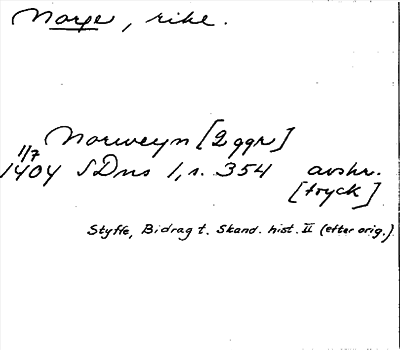 Norge, rike.
Norweyn [2 ggr]
1/7
1404 SDns 1, s. 354 avskr.
[tryck]
Styffe, Bidrag t. Skand. hist. II (efter orig.)